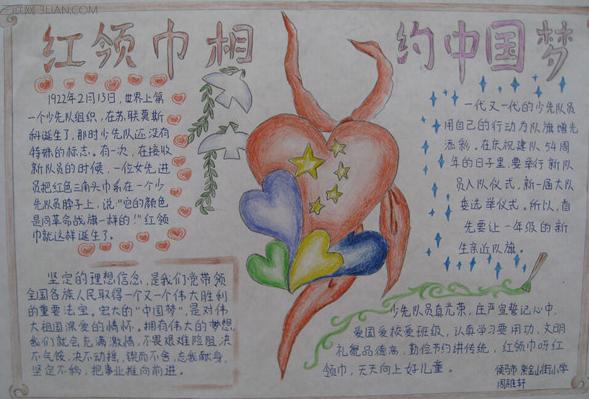 红领巾相约中国梦
1922年2月13日,世界上第
一个少先队组织,在苏联莫斯
科诞生了,那时少先队还没有
特殊的标志。有一次,在接收
新队员的时候,一位女先进
员把红色三角头巾系在一个少
先队员脖子上,说:“它的颜色
是同革命战旗一样的!”红领
巾就这样诞生了。
坚定的理想信念,是我们党带领
全国各族人民取得一个又一个伟大胜利
的重要法宝。宏大的“中国梦”,是对伟
大祖国深爱的情怀。拥有伟大的梦想
我们就会充满激情,不畏艰难险阻,决
不气馁,决不动摇,锲而不舍,忘我献身,
坚定不移,把事业推向前进。
一代又一代的少先队员
用自己的行动为队旗增光
添彩,在庆祝建队54周
年的日子里,要举行新队
员入队仪式,新一届大队
委选举仪式。所以,首
先要让一年级的新
生亲近队旗。
少先队员真光荣,庄严宣誓记心中,
爱国爱校爱班级,认真学习要用功,文明
礼貌品德高,勤俭节约讲传统,红领巾呀红
领巾,天天向上好儿童。
小学
周雅轩